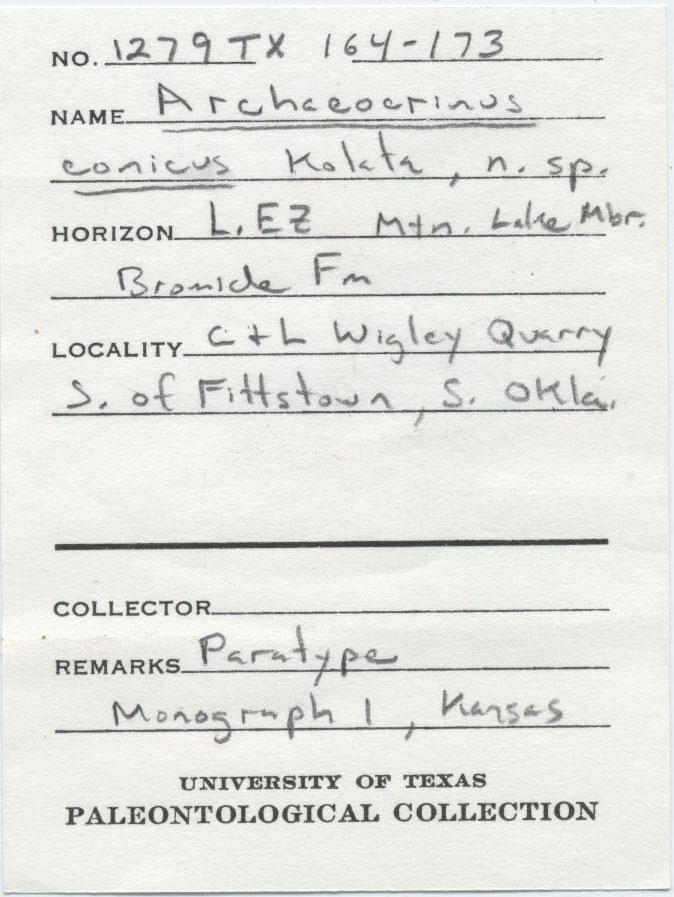 NO. 1279TX 164-173
NAME Archaeocrinus
conicus Kolata, n. sp.
HORIZON L. EZ Mtn. Lake Mbr.
Bromide Fm
LOCALITY C + L Wigley Quarry
S. of Fittstown, S. Okla.
COLLECTOR
REMARKS Paratype
Monograph 1, Kansas
UNIVERSITY OF TEXAS
PALEONTOLOGICAL COLLECTION